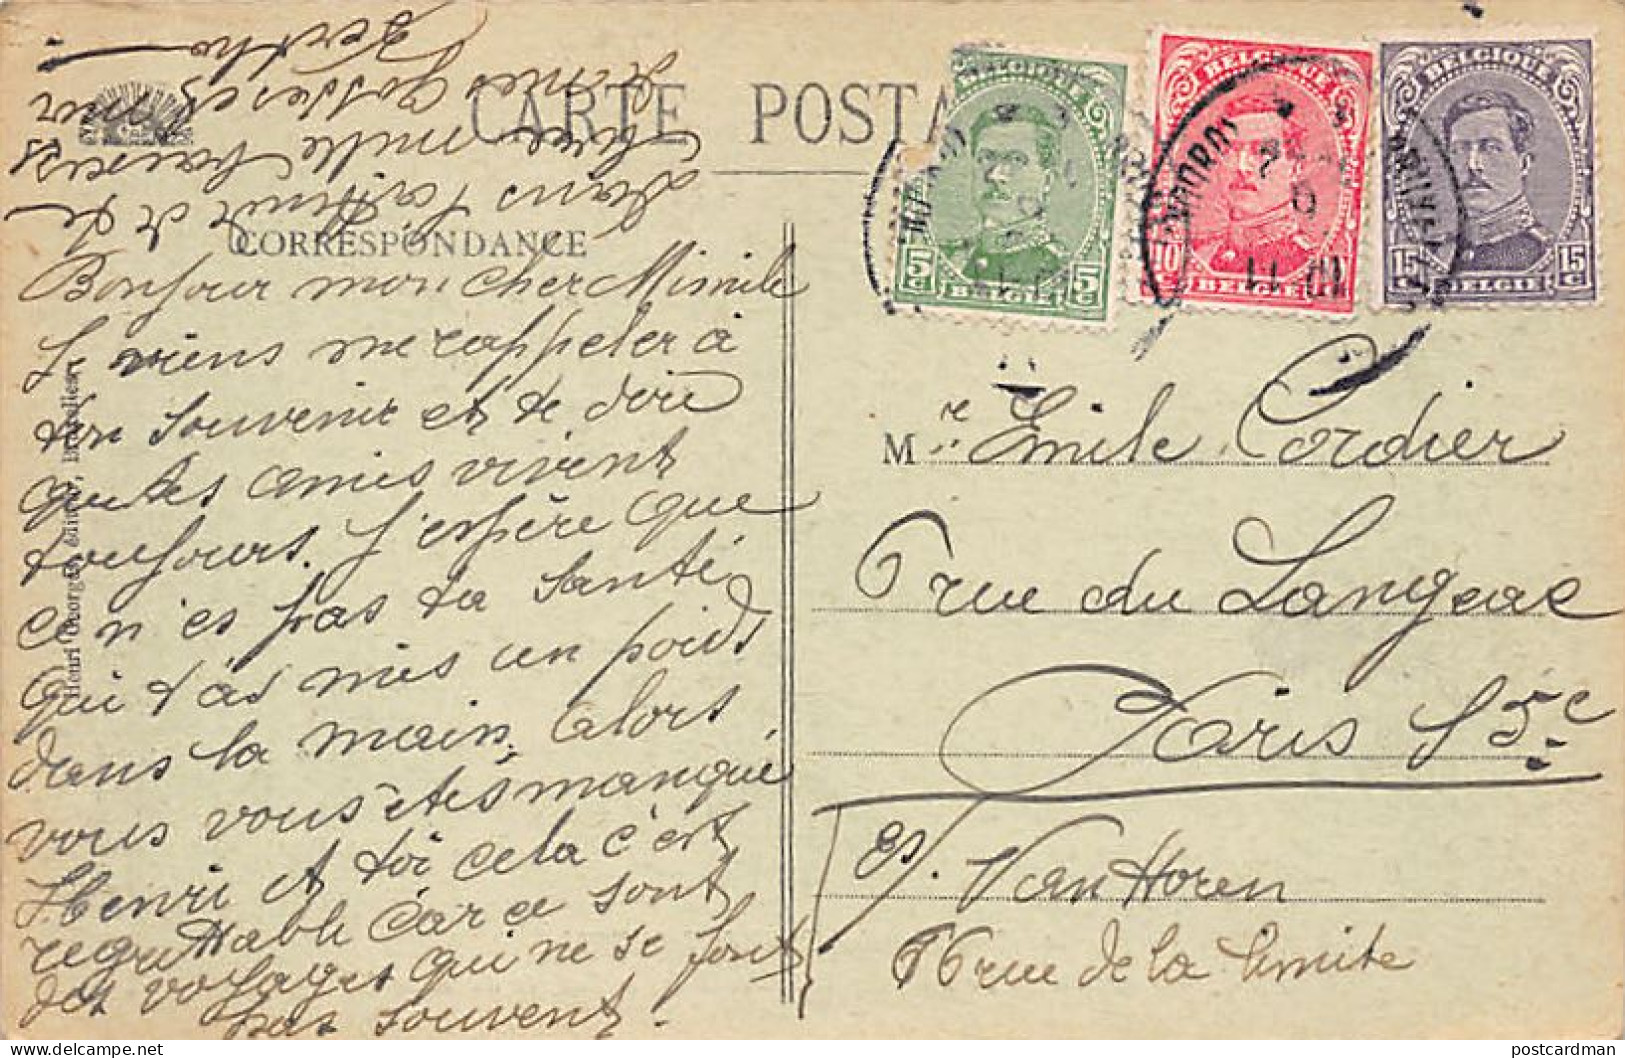 CARTE POSTA
CORRESPONDANCE
Bonjour mon cher Mimile
Je viens me rappeler à
ton souvenir et te dire
que tes amies vivent
toujours. J'espère que
ce n'es pas ta santé
qui t'as mis un poids
dans la main, alors
vous vous êtes manqué
Henri et toi cela c'est
regrettable car ce sont
des voyages qui ne se font
pas souvent.
dans l'attente de te
lire mille baisers
de mes gosses et
Henri Georges, éditeur, Bruxelles
BELGIQUE
5 c BELGIE 5 c
BELGIQUE
10 BELGIE
BELGIQUE
15 c BELGIE 15 c
Mr Emile Cordier
6 rue du Langeac
Paris 15e
Ex. Van Horen
76 rue de la limite
postcardman